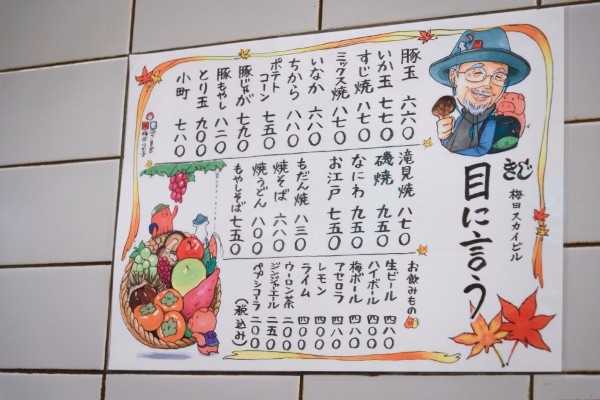 きじ
梅田スカイビル
目に言う
豚玉 六六〇
いか玉 七七〇
すじ焼 八七〇
ミックス焼 八七〇
いなか 六八〇
ちから 八八〇
ポテトコーン 七五〇
豚じゃが 七九〇
豚もやし 八二〇
とり玉 九〇〇
小町 七八〇
滝見焼 八七〇
磯焼 九五〇
なにわ 九五〇
お江戸 七五〇
もだん焼 八三〇
焼そば 六八〇
焼うどん 八〇〇
もやしそば 七五〇
お飲みもの
生ビール 四八〇
ハイボール 四八〇
梅ボール 四八〇
アセロラ 四八〇
レモン 四〇〇
ライム 四〇〇
ウーロン茶 二〇〇
ジンジャエール 二五〇
ペプシコーラ 二〇〇
(税込み)